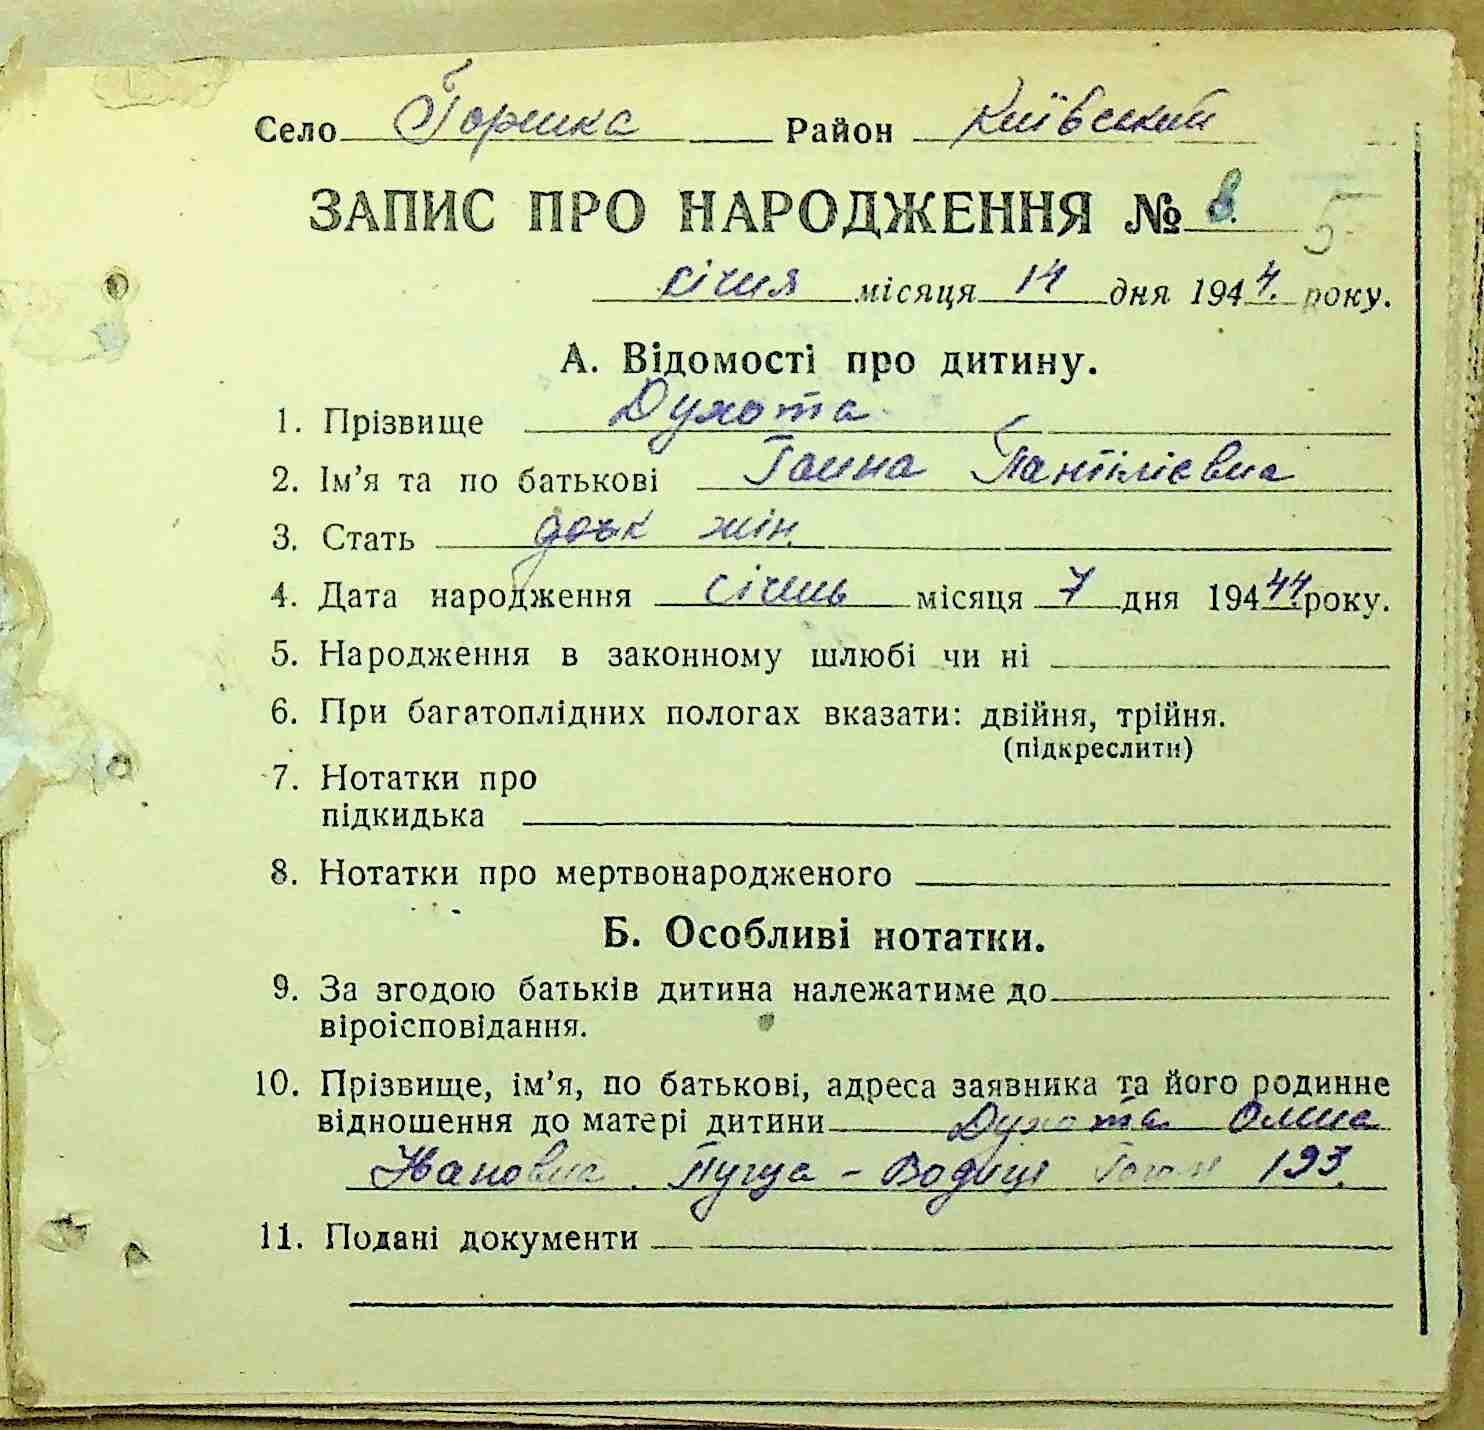 Село Горинка Район Київський
ЗАПИС ПРО НАРОДЖЕННЯ № 8. 5
січня місяця 14 дня 1944. року.
А. Відомості про дитину.
1. Прізвище Духота
2. Ім’я та по батькові Ганна Пантілієвна
3. Стать жін.
4. Дата народження січень місяця 7 дня 19444 року.
5. Народження в законному шлюбі чи ні
6. При багатоплідних пологах вказати: двійня, трійня.
(підкреслити)
7. Нотатки про
підкидька
8. Нотатки про мертвонародженого
Б. Особливі нотатки.
9. За згодою батьків дитина належатиме до
віроісповідання.
10. Прізвище, ім’я, по батькові, адреса заявника та його родинне
відношення до матері дитини Духота
Ивановна. Пуща-Водиця 193.
11. Подані документи